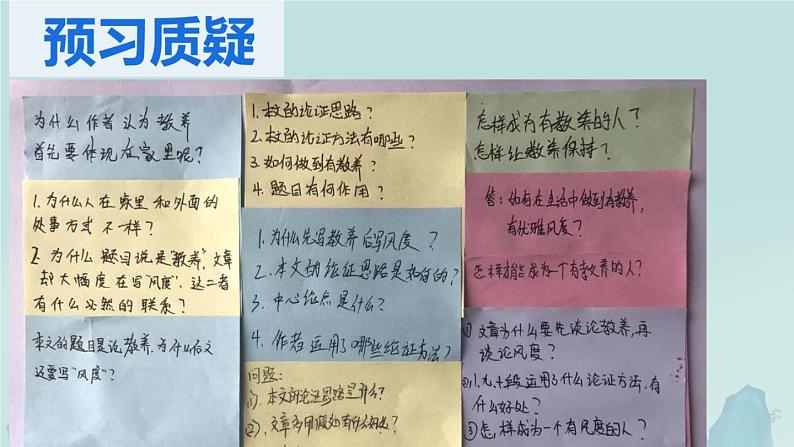 预习质疑
为什么作者认为教养
首先要体现在家里呢?
1.为什么人在家里和外面的
处事方式不一样?
2.为什么题目说是"教养",文章
却大幅度在写"风度",这二者
有什么必然的联系?
本文的题目是论教养,为什么后文
还要写"风度"?
1.本文的论证思路?
2.本文的论证方法有哪些?
3.如何做到有教养?
4.题目有何作用?
1.为什么先写教养后写风度?
2.本文的论证思路是如何的?
3.中心论点是什么?
4.作者运用了哪些论证方法?
问题:
①.本文的论证思路是什么?
②.文章多用假设有什么好处?
怎样成为有教养的人?
怎样让教养保持?
答:如何在生活中做到有教养,
有优雅风度?
怎样才能成为一个有教养的人?
①文章为什么要先谈论教养,再
谈论风度?
②1.九、十段运用了什么论证方法,有
什么好处?
③怎样成为一个有风度的人?